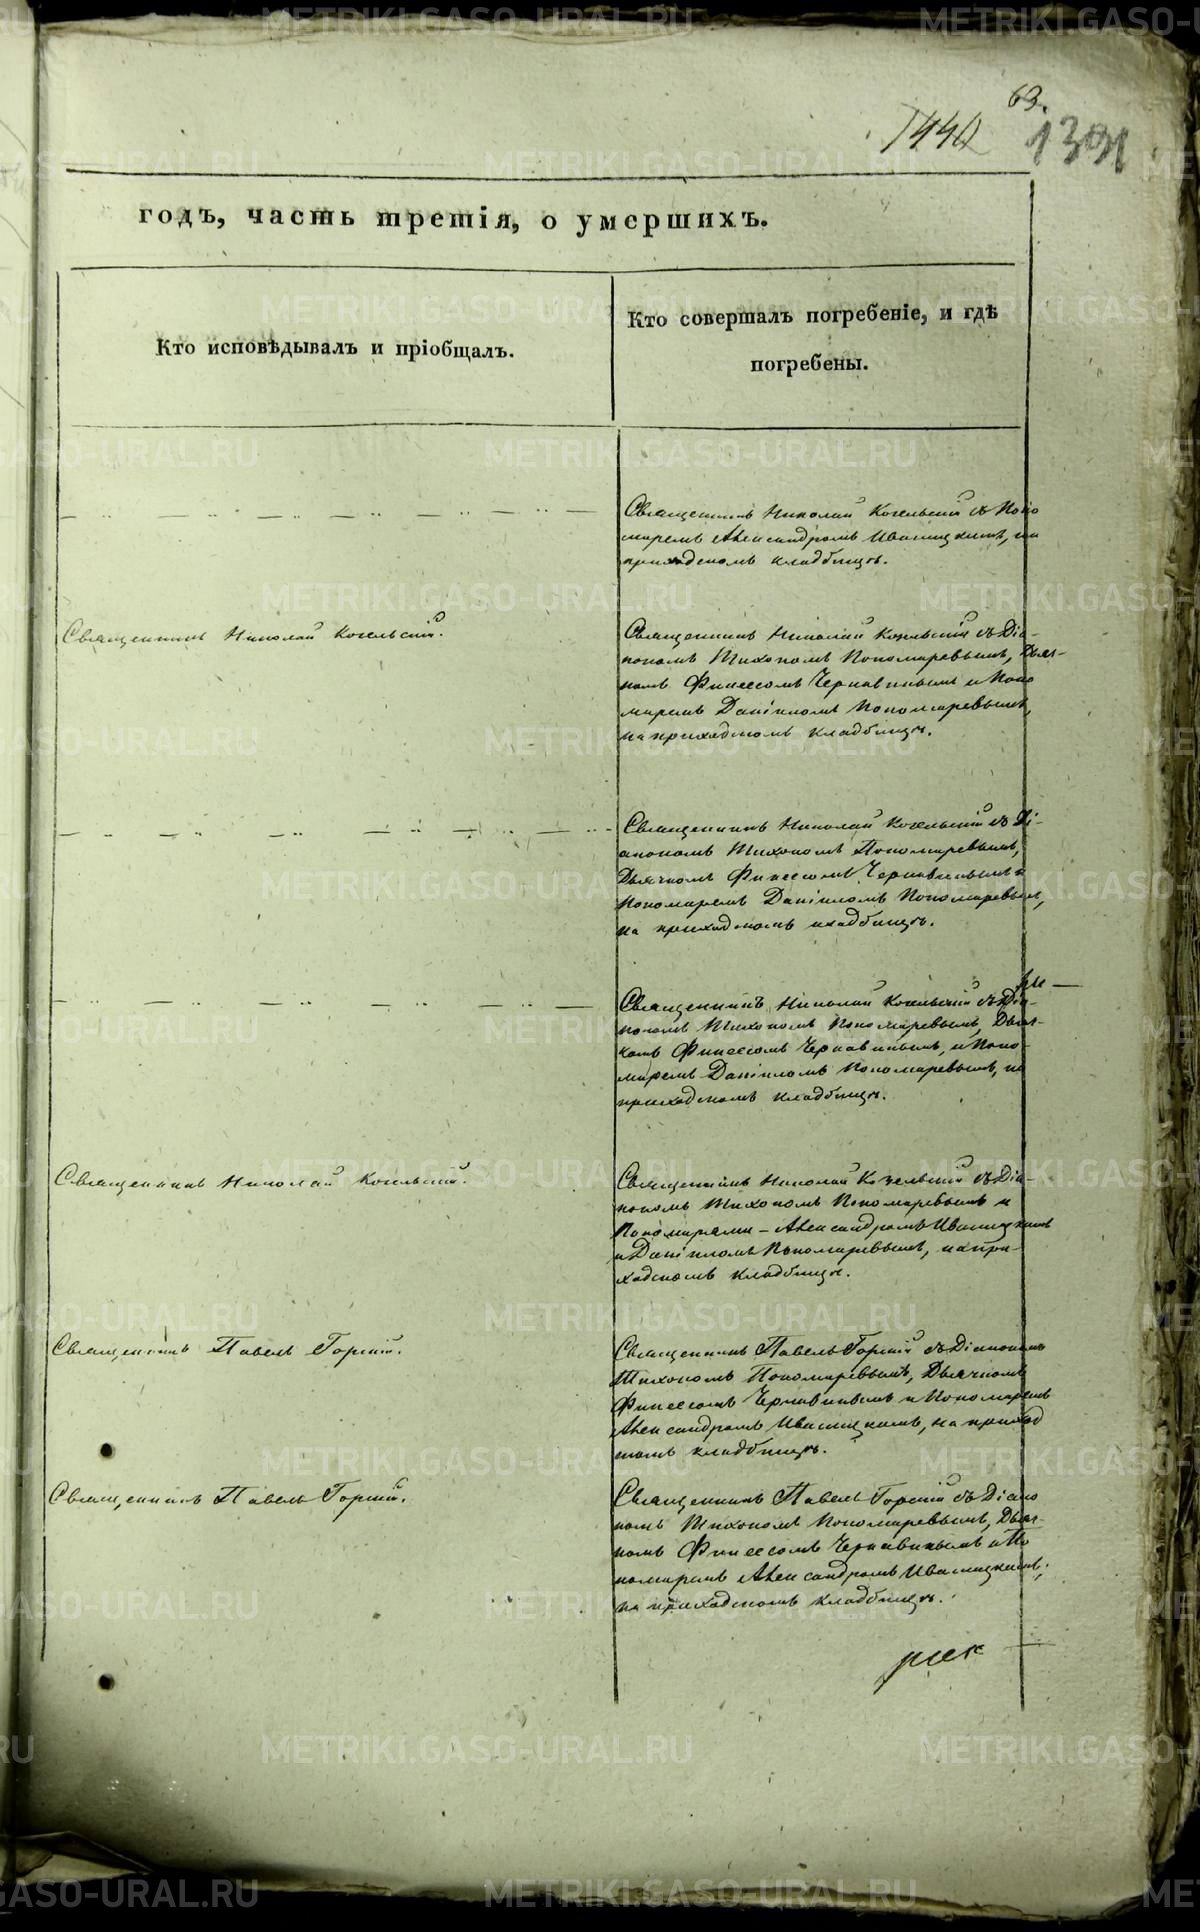 63.
1440 1391
годъ, часть третія, о умершихъ.
Кто исповѣдывалъ и пріобщалъ.
Кто совершалъ погребеніе, и гдѣ
погребены.
Священникъ Николай Когельскій съ Поно
маремъ Александромъ Иваницкимъ, на
приходскомъ кладбищѣ.
Священникъ Николай Когельскій.
Священникъ Николай Когельскій съ Діа-
кономъ Тихономъ Пономаревымъ, Дьяч-
комъ Финеесомъ Чернавинымъ и Поно
маремъ Даніиломъ Пономаревымъ,
на приходскомъ кладбищѣ.
Священникъ Николай Когельскій съ Ді-
акономъ Тихономъ Пономаревымъ,
Дьячкомъ Финеесомъ Чернавинымъ и
Пономаремъ Даніиломъ Пономаревым,
на приходскомъ кладбищѣ.
Священникъ Николай Когельскій съ Діа-
кономъ Тихономъ Пономаревымъ, Дьяч-
комъ Финеесомъ Чернавинымъ, и Поно-
маремъ Даніиломъ Пономаревымъ, на
приходскомъ кладбищѣ.
Священникъ Николай Когельскій.
Священникъ Николай Когельскій съ Діа-
кономъ Тихономъ Пономаревымъ и
Пономарями – Александромъ Иваницкимъ
и Даніиломъ Пономаревымъ, на при-
ходскомъ кладбищѣ.
Священникъ Павелъ Горскій.
Священникъ Павелъ Горскій съ Діакономъ
Тихономъ Пономаревымъ, Дьячкомъ
Финеесомъ Чернавинымъ и Пономаремъ
Александромъ Иваницкимъ, на приход
скомъ кладбищѣ.
Священникъ Павелъ Горскій.
Священникъ Павелъ Горскій съ Діако
номъ Тихономъ Пономаревымъ, Дьяч-
комъ Финеесомъ Чернавинымъ и По
номаремъ Александромъ Иваницкимъ,
на приходскомъ кладбищѣ.
METRIKI.GASO-URAL.RU